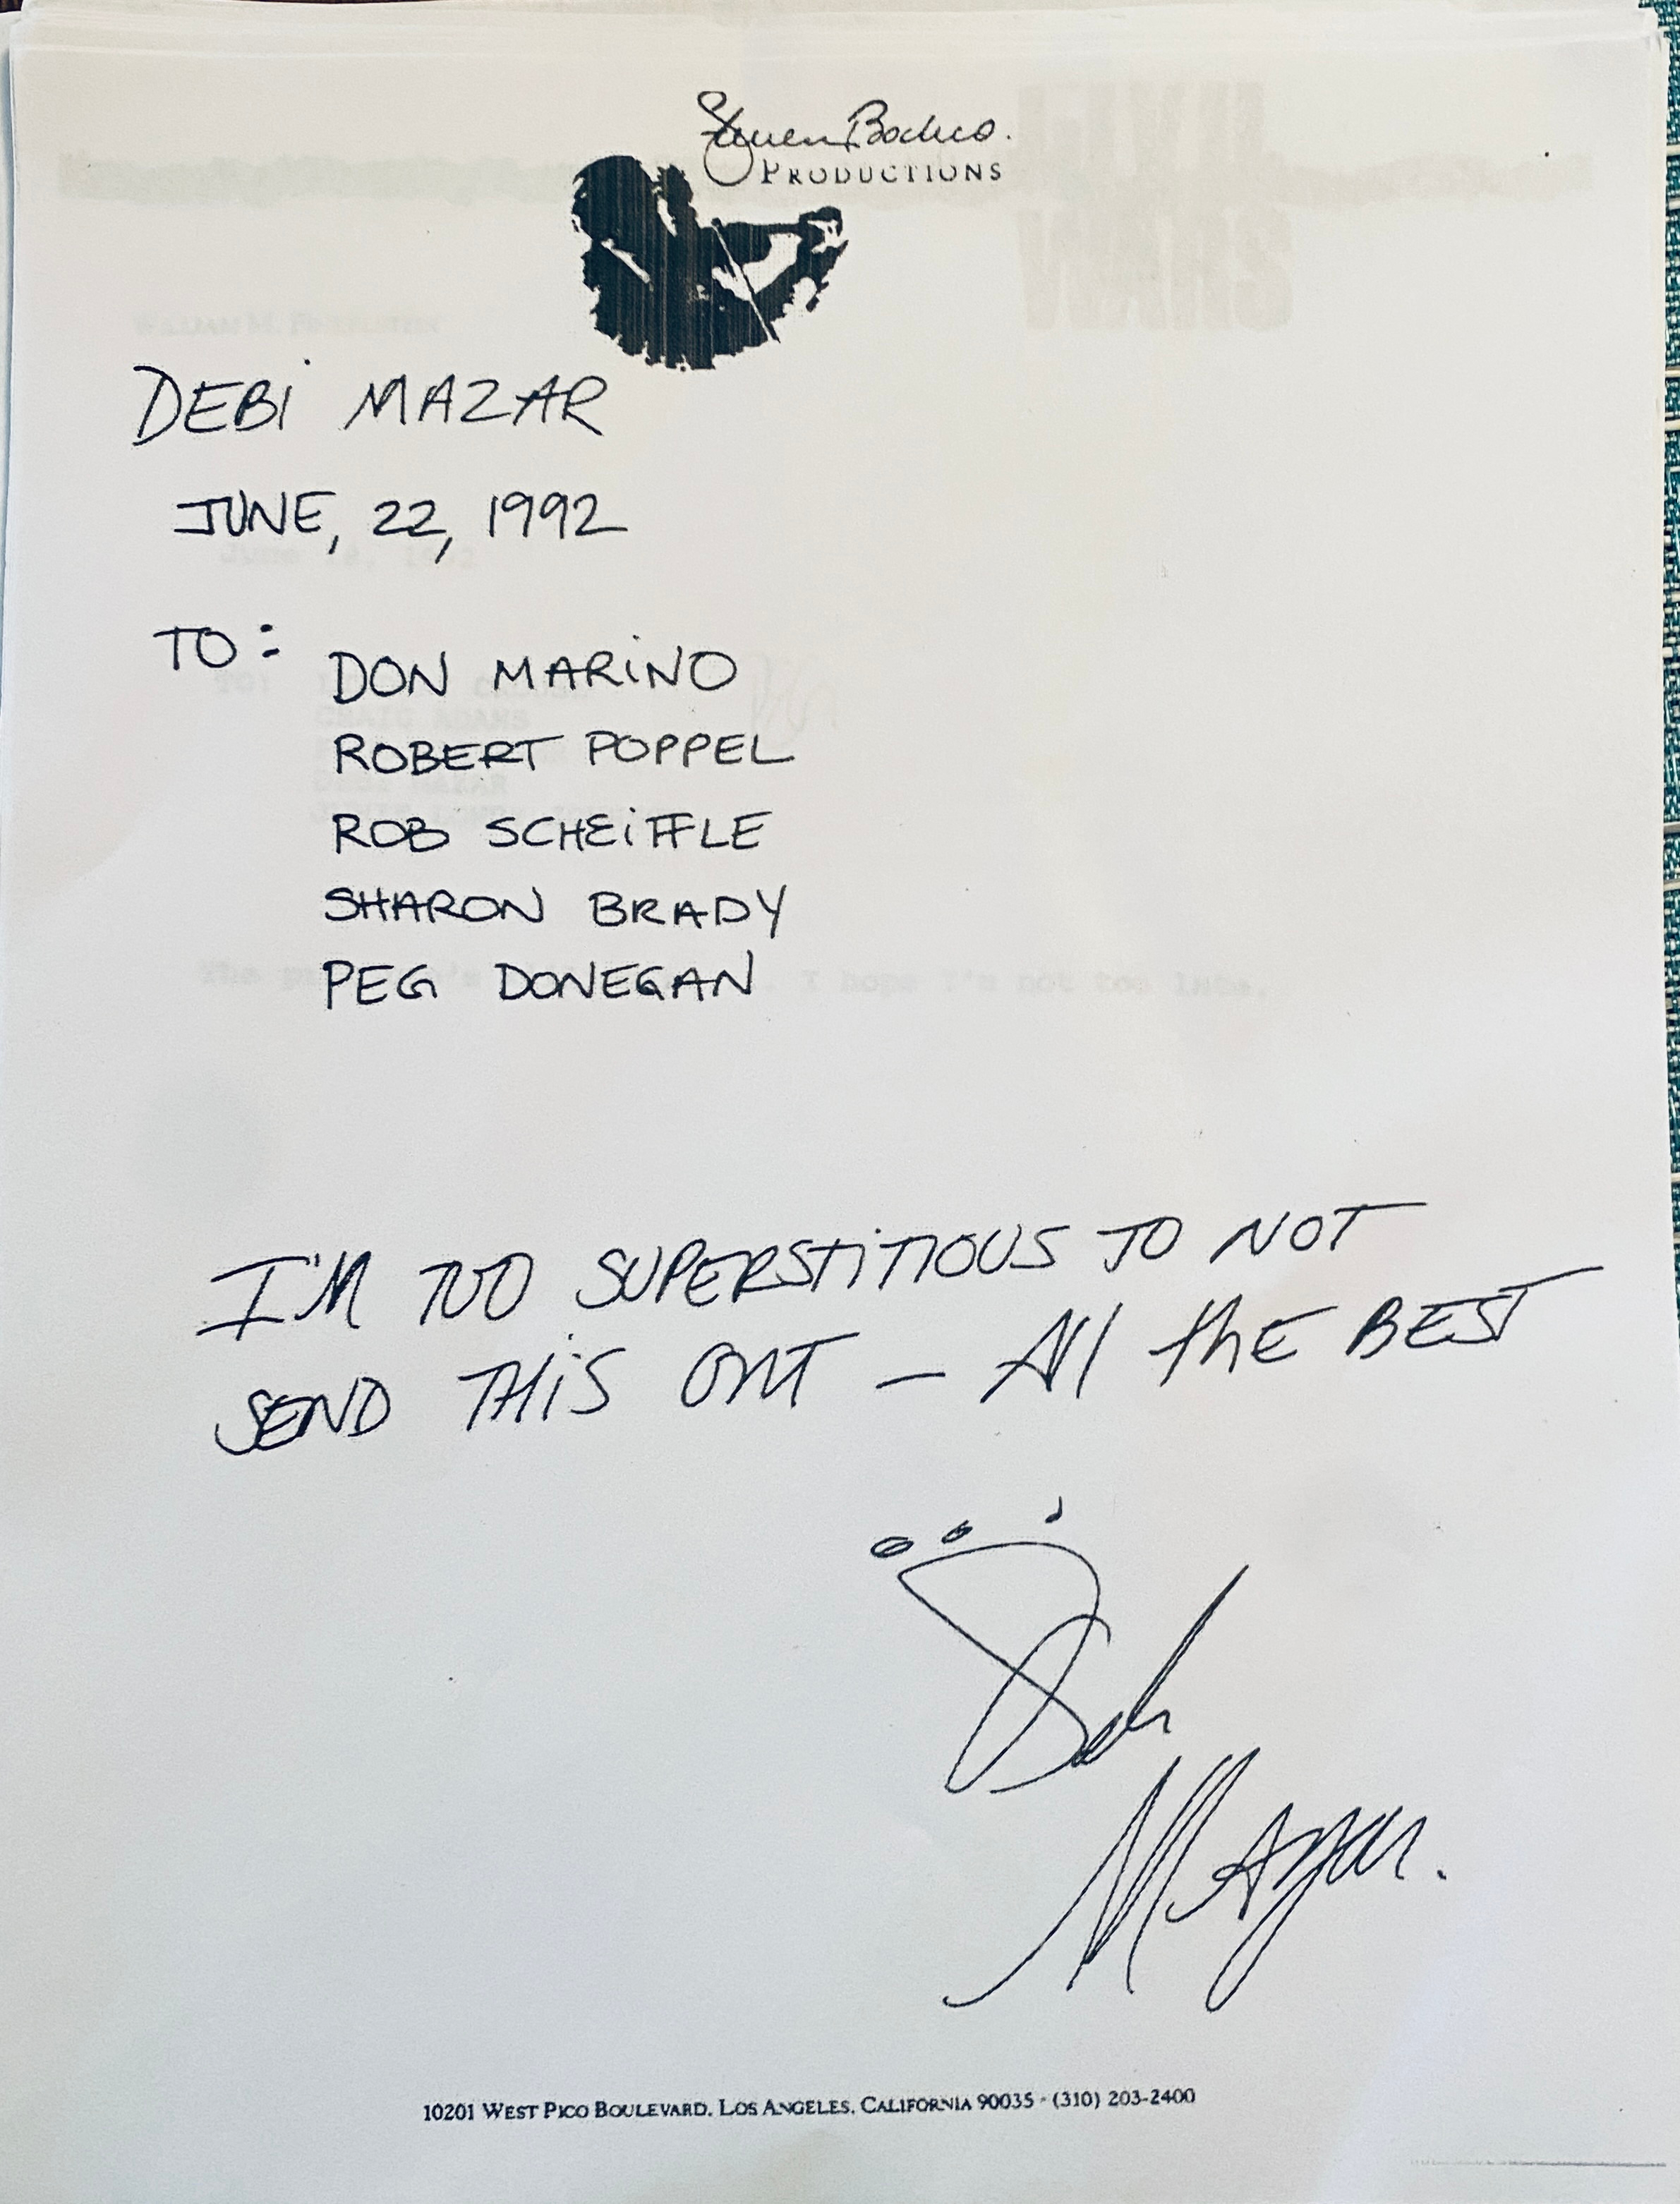 Steven Bochco
PRODUCTIONS
DEBI MAZAR
JUNE, 22, 1992
TO:
DON MARINO
ROBERT POPPEL
ROB SCHEIFFLE
SHARON BRADY
PEG DONEGAN
I hope I'm not too late.
I'M TOO SUPERSTITIOUS TO NOT
SEND THIS OUT – All thE BEST
Debi
MAzar.
10201 WEST PICO BOULEVARD, LOS ANGELES, CALIFORNIA 90035 · (310) 203-2400